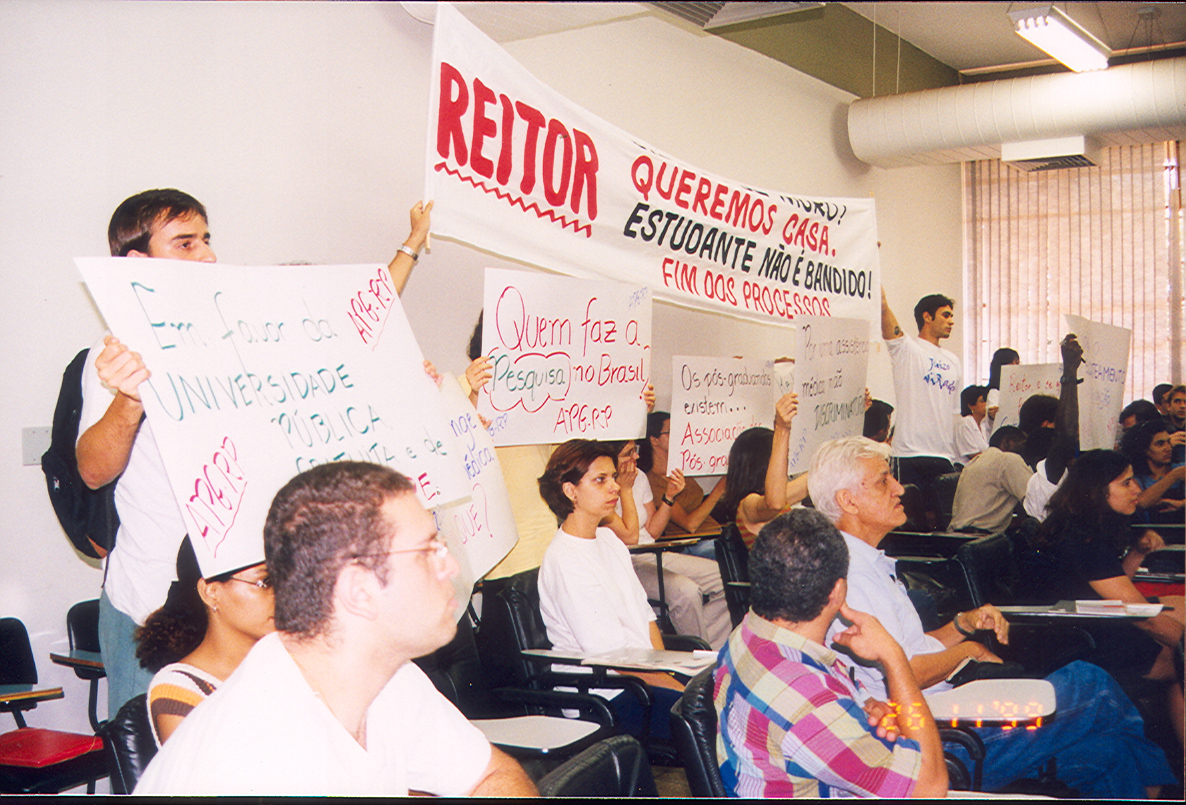 REITOR
QUEREMOS CASA.
ESTUDANTE NÃO É BANDIDO!
FIM DOS PROCESSOS
Em favor da
UNIVERSIDADE
PÚBLICA
e de
APG-RP
APG-RP
Quem faz a
Pesquisa no Brasil
APG-RP
QUE?
Os pós-graduandos
existem...
Associação de
Pós-gra
Por uma assistência
médica não
DISCRIMINATÓR
Reitor e s
26 11 '99